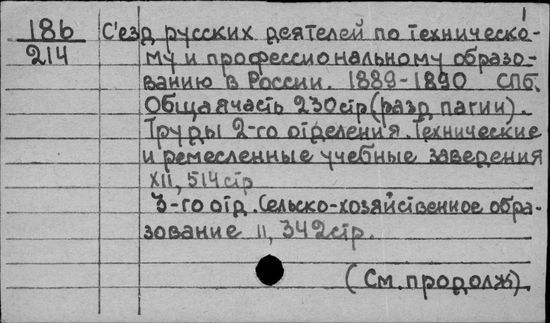 1
186 С'езд русских деятелей по техническо-
214 му и профессиональному образо-
ванию в России. 1889-1890 СПб.
Общая часть 230стр(разд пагии).
Труды 2-го отделения. Технические
и ремесленные учебные заведения
XII, 514стр
3-го отд. Сельско-хозяйственное обра-
зование II, 342стр.
(См. продолж).